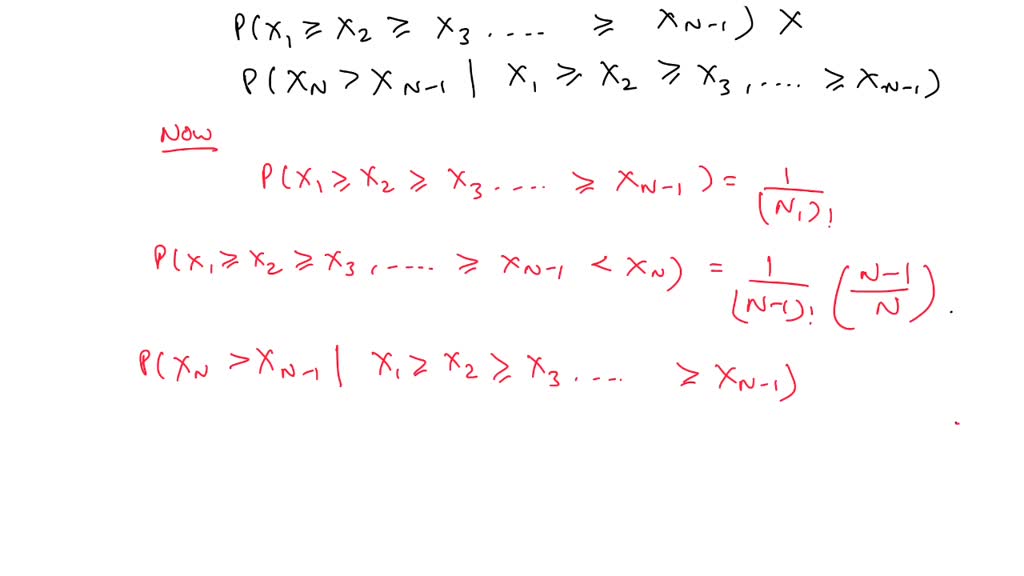 P(X₁ ≥ X₂ ≥ X₃ ..... ≥ X_{N-1}) X
P(X_N > X_{N-1} | X₁ ≥ X₂ ≥ X₃, ..... ≥ X_{N-1})
Now
P(X₁ ≥ X₂ ≥ X₃ ..... ≥ X_{N-1}) = 1/(N,)!
P(X₁ ≥ X₂ ≥ X₃, ..... ≥ X_{N-1} < X_N) = 1/(N-1)! ((N-1)/N).
P(X_N > X_{N-1} | X₁ ≥ X₂ ≥ X₃ ..... ≥ X_{N-1})